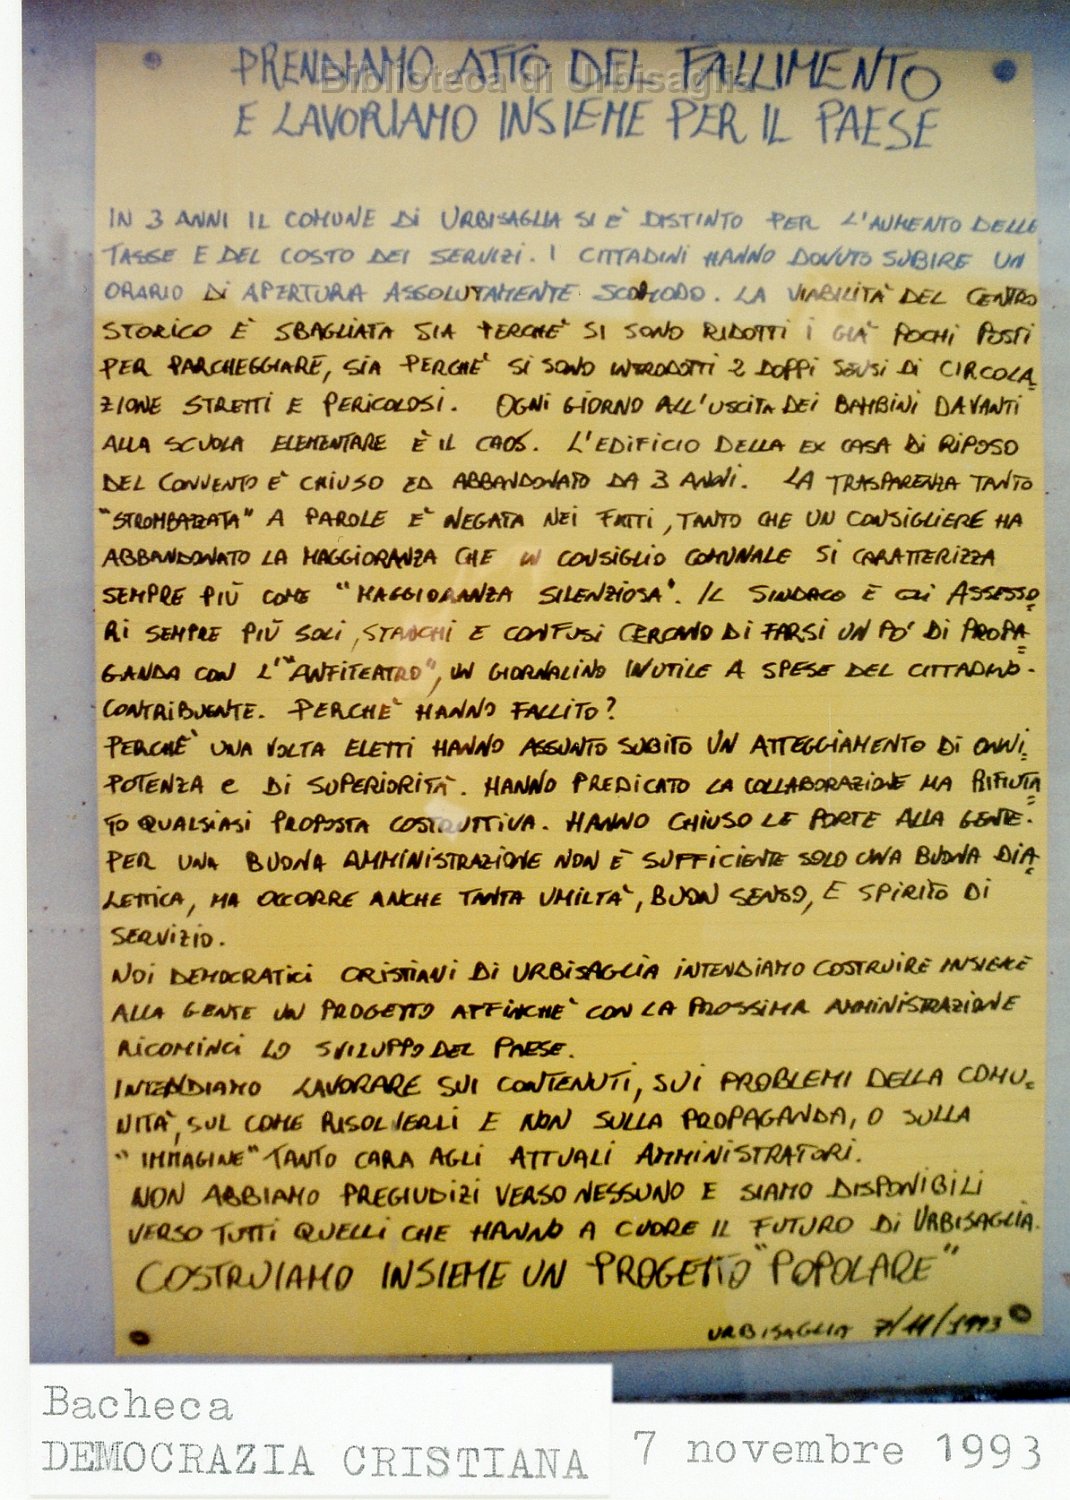 PRENDIAMO ATTO DEL FALLIMENTO
Biblioteca di Urbisaglia
E LAVORIAMO INSIEME PER IL PAESE
IN 3 ANNI IL COMUNE DI URBISAGLIA SI È DISTINTO PER L'AUMENTO DELLE
TASSE E DEL COSTO DEI SERVIZI. I CITTADINI HANNO DOVUTO SUBIRE UN
ORARIO DI APERTURA ASSOLUTAMENTE SCOMODO. LA VIABILITÀ DEL CENTRO
STORICO E' SBAGLIATA SIA PERCHE' SI SONO RIDOTTI I GIÀ POCHI POSTI
PER PARCHEGGIARE, SIA PERCHE' SI SONO INTRODOTTI 2 DOPPI SENSI DI CIRCOLA=
ZIONE STRETTI E PERICOLOSI. OGNI GIORNO ALL'USCITA DEI BAMBINI DAVANTI
ALLA SCUOLA ELEMENTARE È IL CAOS. L'EDIFICIO DELLA EX CASA DI RIPOSO
DEL CONVENTO E' CHIUSO ED ABBANDONATO DA 3 ANNI. LA TRASPARENZA TANTO
"STROMBAZZATA" A PAROLE E' NEGATA NEI FATTI, TANTO CHE UN CONSIGLIERE HA
ABBANDONATO LA MAGGIORANZA CHE IN CONSIGLIO COMUNALE SI CARATTERIZZA
SEMPRE PIÙ COME "MAGGIORANZA SILENZIOSA". IL SINDACO E GLI ASSESSO=
RI SEMPRE PIÙ SOLI, STANCHI E CONFUSI CERCANO DI FARSI UN PO' DI PROPA=
GANDA CON L'"ANFITEATRO", UN GIORNALINO INUTILE A SPESE DEL CITTADINO-
CONTRIBUENTE. PERCHE' HANNO FALLITO?
PERCHE' UNA VOLTA ELETTI HANNO ASSUNTO SUBITO UN ATTEGGIAMENTO DI ONNI=
POTENZA E DI SUPERIORITÀ. HANNO PREDICATO LA COLLABORAZIONE MA RIFIUTA=
TO QUALSIASI PROPOSTA COSTRUTTIVA. HANNO CHIUSO LE PORTE ALLA GENTE.
PER UNA BUONA AMMINISTRAZIONE NON È SUFFICIENTE SOLO UNA BUONA DIA=
LETTICA, MA OCCORRE ANCHE TANTA UMILTA', BUON SENSO, E SPIRITO DI
SERVIZIO.
NOI DEMOCRATICI CRISTIANI DI URBISAGLIA INTENDIAMO COSTRUIRE INSIEME
ALLA GENTE UN PROGETTO AFFINCHE' CON LA PROSSIMA AMMINISTRAZIONE
RICOMINCI LO SVILUPPO DEL PAESE.
INTENDIAMO LAVORARE SUI CONTENUTI, SUI PROBLEMI DELLA COMU=
NITÀ, SUL COME RISOLVERLI E NON SULLA PROPAGANDA, O SULLA
"IMMAGINE" TANTO CARA AGLI ATTUALI AMMINISTRATORI.
NON ABBIAMO PREGIUDIZI VERSO NESSUNO E SIAMO DISPONIBILI
VERSO TUTTI QUELLI CHE HANNO A CUORE IL FUTURO DI URBISAGLIA.
COSTRUIAMO INSIEME UN PROGETTO "POPOLARE"
URBISAGLIA 7/11/1993
Bacheca
DEMOCRAZIA CRISTIANA
7 novembre 1993